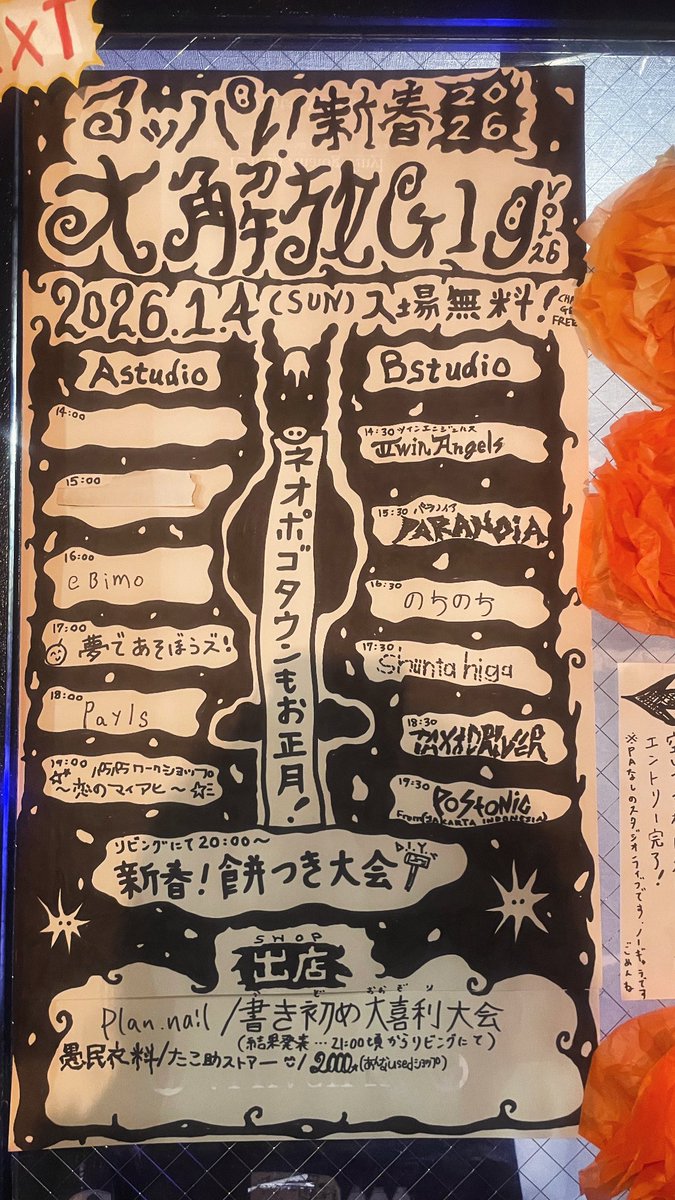 xT
アッパレ新春2026
大解放Gig VOL.26
2026.1.4(SUN)入場無料!
CHA
GE
FREE
A studio
B studio
ネオポゴタウンもお正月!
14:00
14:30 ツインエンジェルス
Twin Angels
15:00
15:30 パラノイア
PARANOiA
16:00
eBimo
16:30
のちのち
17:00
夢であそぼうズ!
17:30
Shunta higa
18:00
Payls
18:30
TAXi DRiVER
19:00
パラパラワークショップ
〜恋のマイアヒ〜
19:30
PoStonic
From(JAKARTA INDONESIA)
リビングにて20:00〜
新春!餅つき大会
D.I.Y.
SHOP
出店
plan.nail/書き初め大喜利大会
(結果発表…21:00頃からリビングにて)
愚民衣料/たこ助ストアー/2,000
エントリー完了!
※PAなしのスタジオライブです.ノーギャラです
ごめんね